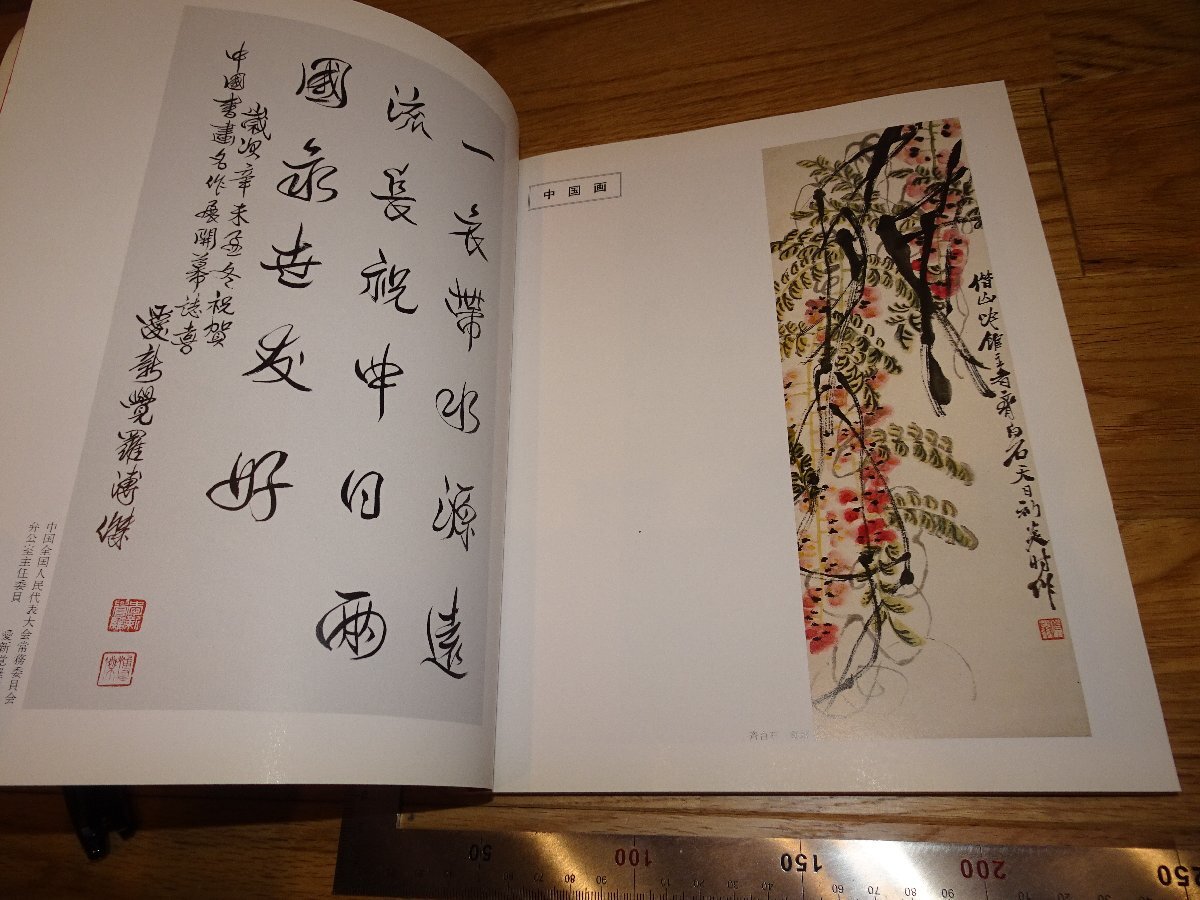 一衣帶水源遠
流長祝中日兩
國永世友好
歲次辛未孟冬祝賀
中國書畫名作展開幕誌喜
愛新覺羅溥傑
中国全国人民代表大会常務委員会
弁公室主任委員
中国画
借山吟館主者齊白石天日初炎時作
50 100 150 200 250